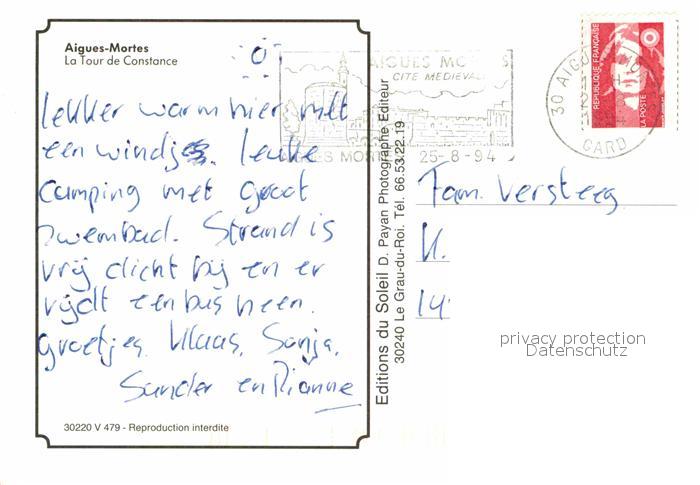 Aigues-Mortes
La Tour de Constance
lekker warm hier met
een windje. leuke
camping met groot
zwembad. Strand is
vrij dicht bij en er
rijdt een bus heen.
groetjes Klaas, Sonja,
Sander en Dianne
30220 V 479 - Reproduction interdite
Editions du Soleil D. Payan Photographe Editeur
30240 Le Grau-du-Roi. Tél. 66.53.22.19
AIGUES MO S
CITE MEDIEVAL
ES MOR 25-8-94
30 AIGU
GARD
REPUBLIQUE FRANÇAISE
LA POSTE
Fam. Versteeg
K.
14
privacy protection
Datenschutz